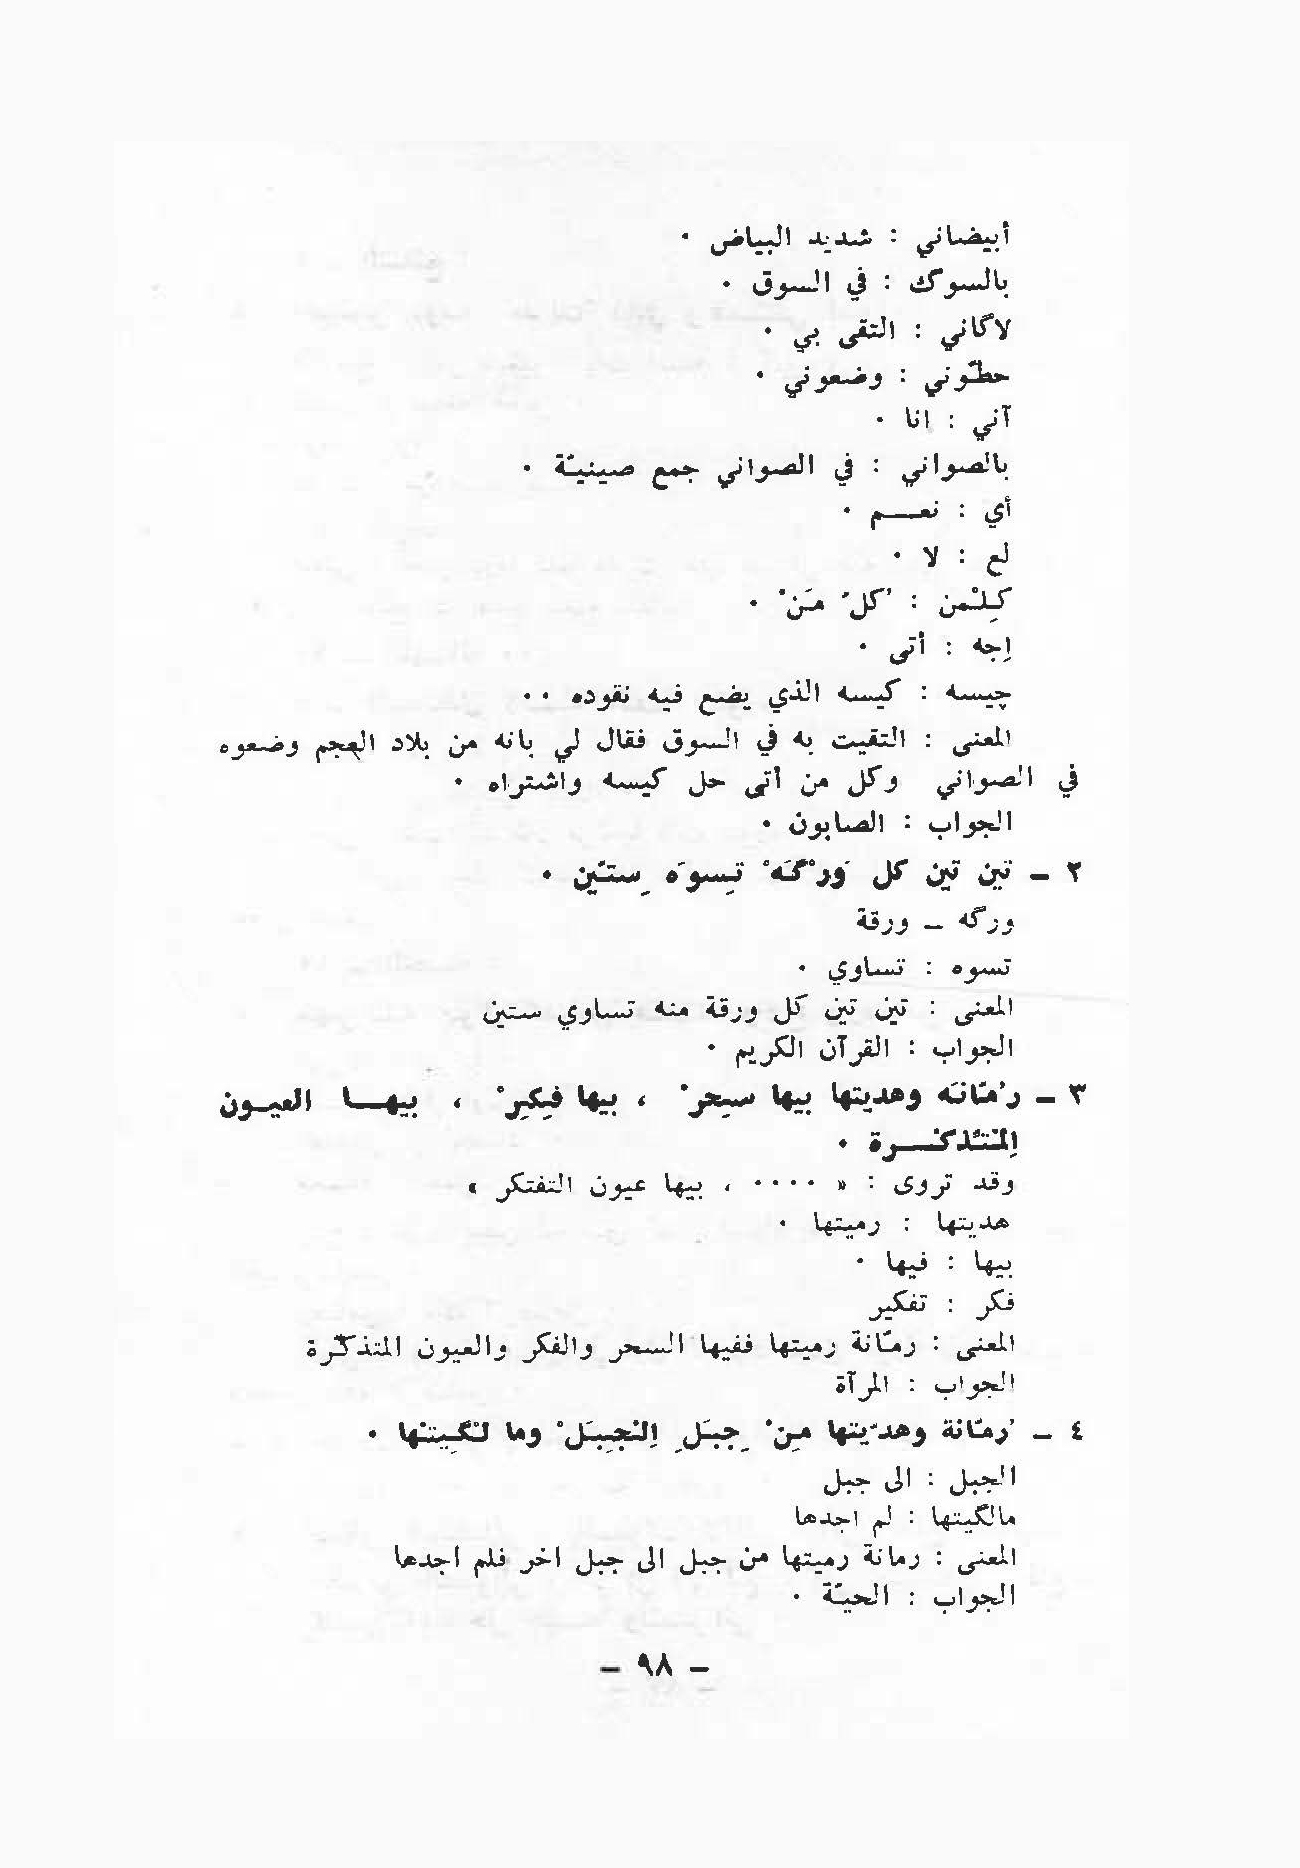 أبيضاني : شديد البياض ٠
بالسوگ : في السوق ٠
لاگاني : التقى بي ٠
حطّوني : وضعوني ٠
آني : انا ٠
بالصواني : في الصواني جمع صينيّة ٠
أي : نعـــم ٠
لع : لا ٠
كِلْمن : كُلّ مَنْ ٠
اِجه : أتى ٠
چيسه : كيسه الذي يضع فيه نقوده ٠٠
المعنى : التقيت به في السوق فقال لي بانه من بلاد العجم وضعوه
في الصواني وكل من أتى حل كيسه واشتراه ٠
الجواب : الصابون ٠
٢ ــ تين تين كل وَرْگَهْ تِسوَه سِتّين ٠
ورگه ــ ورقة
تسوه : تساوي ٠
المعنى : تين تين كل ورقة منه تساوي ستين
الجواب : القرآن الكريم ٠
٣ ــ رُمّانَه وهديتها بيها سِحرْ ، بيها فِكِرْ ، بيهــا العيـون
اِلْمتذكْــرة ٠
وقد تروى : « ٠٠٠٠ ، بيها عيون التفتكر »
هديتها : رميتها ٠
بيها : فيها ٠
فكر : تفكير
المعنى : رمّانة رميتها ففيها السحر والفكر والعيون المتذكّرة
الجواب : المرآة
٤ ــ رُمّانة وهدّيتها مِنْ جِبَلِ اِلنْجِبَلْ وما لگِيتْها ٠
الجبل : الى جبل
مالگيتها : لم اجدها
المعنى : رمانة رميتها من جبل الى جبل اخر فلم اجدها
الجواب : الحيّة ٠
ــ ٩٨ ــ